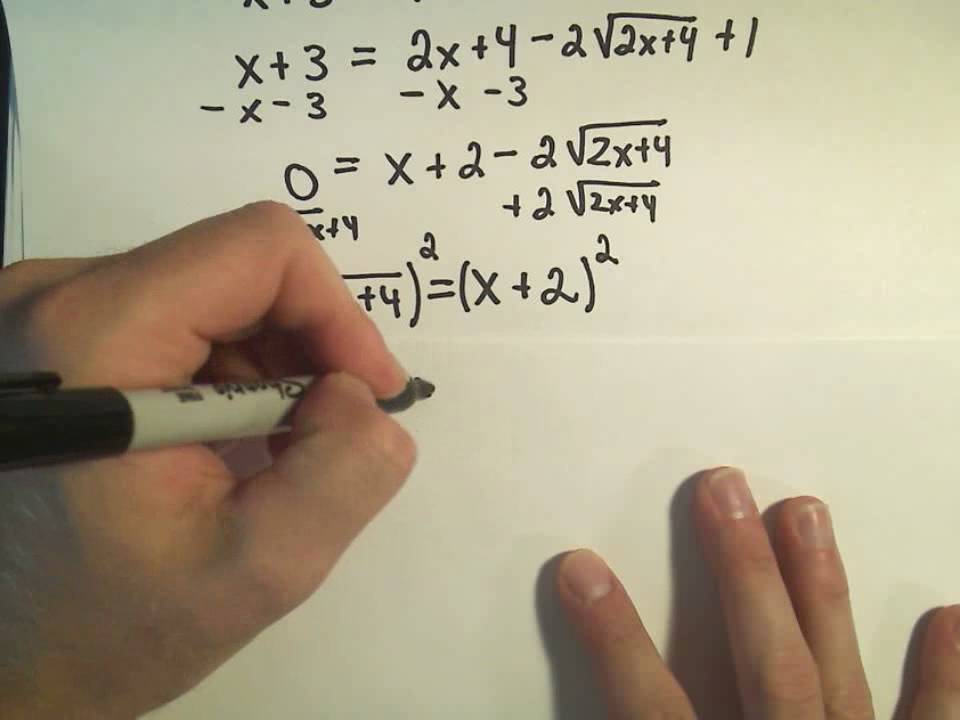 x + 3 = 2x + 4 - 2√(2x+4) + 1
- x - 3 - x - 3
0 = x + 2 - 2√(2x+4)
x+4 + 2√(2x+4)
+4)² = (x + 2)²
Sharpie